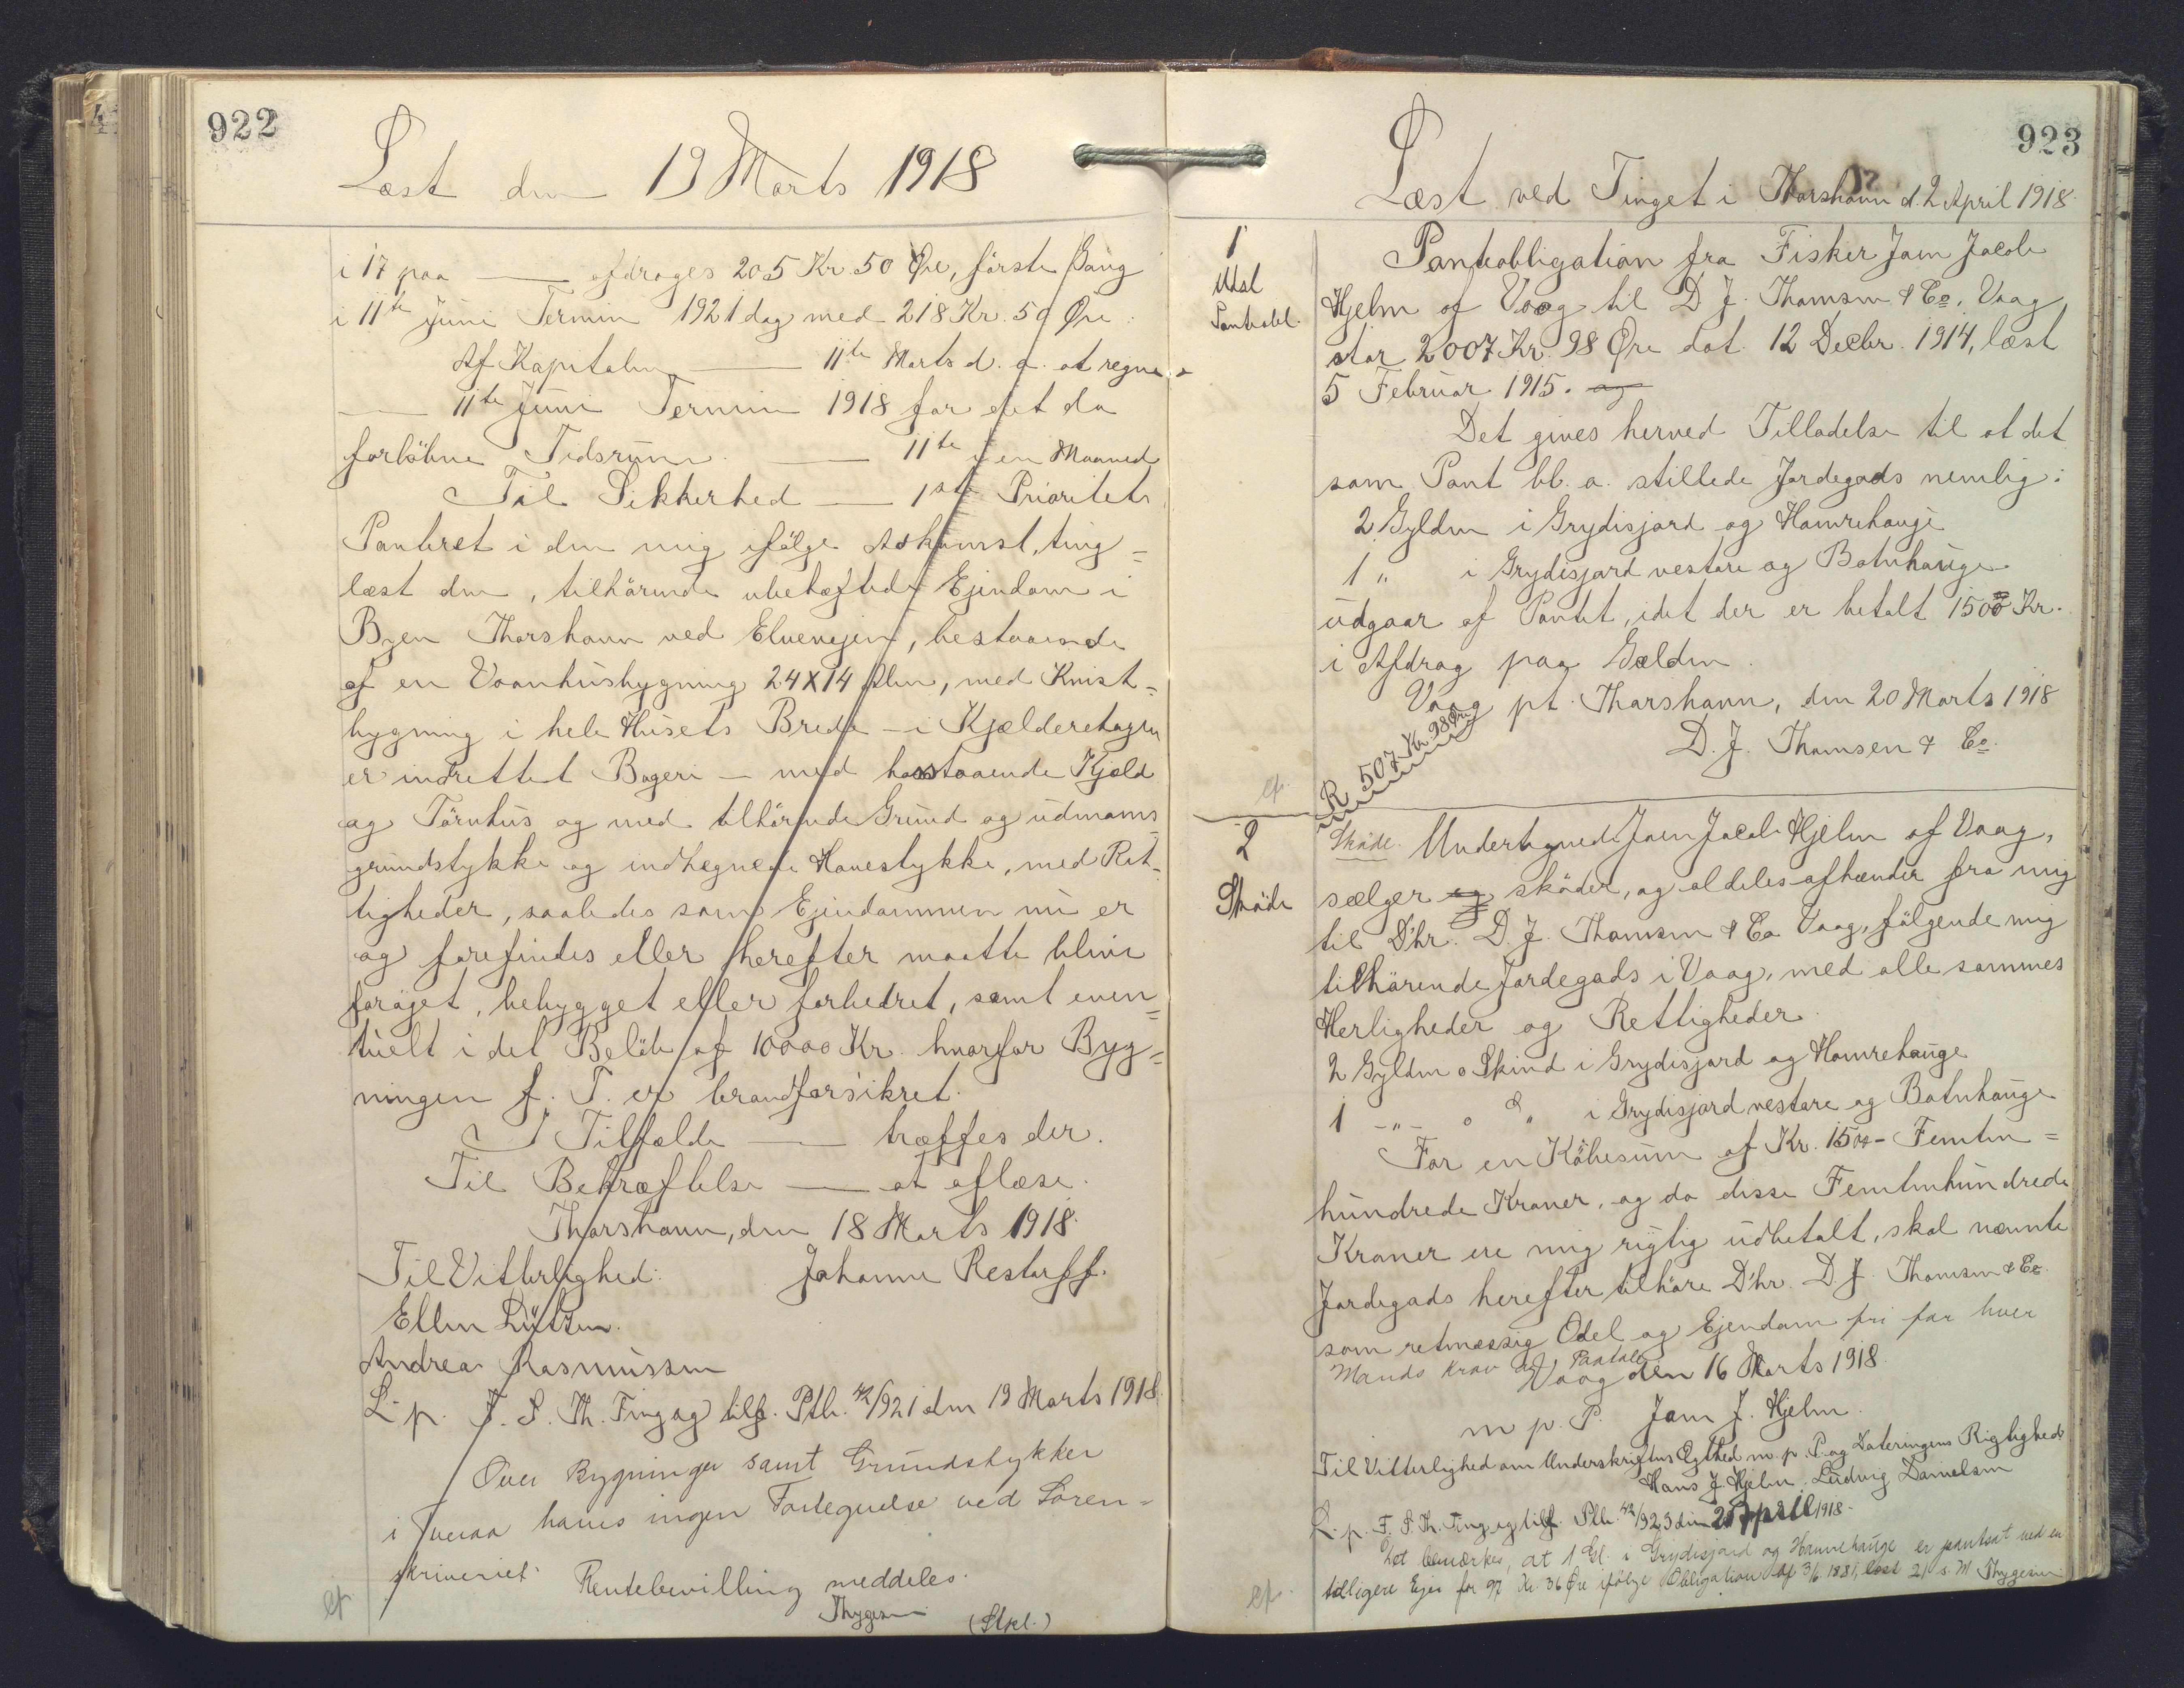 922
Læst den 19 Marts 1918
i 17 paa — afdrages 205 Kr. 50 Øre, förste Gang
i 11te Juni Termin 1921 dog med 218 Kr. 50 Øre.
Af Kapitalen — 11te Marts d. a. at regne
— 11te Juni Termin 1918 for det da
forløbne Tidsrum — 11te i en Maaned
Til Sikkerhed — 1ste Prioritets
Panteret i den mig ifølge Adkomst, ting=
læst den , tilhørende ubehæftede Ejendom i
Byen Thorshavn ved Elvevejen, bestaaende
af en Vaanhusbygning 24X14 Alen, med Kvist=
bygning i hele Husets Brede — i Kjælderetagen
er indrettet Bageri — med hosstaaende Kjeld
og Törvhus og med tilhørende Grund og udmarks
grundstykke og indhegnede Havestykke, med Ret=
tigheder, saaledes som Ejendommen nu er
og forefindes eller herefter maatte blive
forøjet, bebygget eller forbedret, samt even=
tuelt i det Beløb af 10000 Kr. hvorfor Byg=
ningen f. T. er brandforsikret.
I Tilfælde — træffes der.
Til Bekræftelse — at aflæse.
Thorshavn, den 18 Marts 1918.
Til Vitterlighed: Johanne Restorff.
Ellen Lützen.
Andrea Rasmussen
L. p. F. S. Th. Ting og tilf. Ptb. 42/921 den 19 Marts 1918.
Over Bygninger samt Grundstykker
i Tveraa haves ingen Fortegnelse ved Soren=
skriveriet. Rentebevilling meddeles.
Thygesen (Stpl.)
923
Læst ved Tinget i Thorshavn d. 2 April 1918.
1
Udsl
Panteobl.
Panteobligation fra Fisker Joen Jacob
Hjelm af Vaag til D. J. Thomsen & Co, Vaag
stor 2007 Kr. 98 Øre dat. 12 Decbr. 1914, læst
5 Februar 1915. og
Det gives herved Tilladelse til at det
som Pant bl. a. stillede Jordegods nemlig:
2 Gylden i Grydisjord og Hamrehauge
1 " i Grydisjord vestare og Botnhauge
udgaar af Pantet, idet der er betalt 1500 Kr.
i Afdrag paa Gælden.
Vaag pt. Thorshavn, den 20 Marts 1918
D. J. Thomsen & Co.
R 507 Kr. 98 Øre
2
Skøde
Skøde. Undertegnede Joen Jacob Hjelm af Vaag,
sælger og skøder, og aldeles afhænder fra mig
til D'hr. D. J. Thomsen & Co Vaag, følgende mig
tilhørende Jordegods i Vaag, med alle sammes
Herligheder og Rettigheder.
2 Gylden o Skind i Grydisjord og Hamrehauge
1 -"- o " i Grydisjord vestare og Botnhauge
For en Købesum af Kr. 1500- Femten=
hundrede Kroner, og da disse Femtenhundrede
Kroner ere mig rigtig udbetalt, skal nævnte
Jordegods herefter tilhøre D'hr. D. J. Thomsen & Co.
som retmæssig Odel og Ejendom fri for hver
Mands Krav og Paatale
Vaag den 16 Marts 1918
m. p. P. Joen J. Hjelm.
Til Vitterlighed om Underskriftens Ægthed m. p. P. og Dateringens Rigtighed.
Hans J. Hjelm. Ludvig Danielsen
L. p. F. S. Th. Ting og tilf. Ptb. 42/923 den 2 April 1918.
Det bemærkes, at 1 Gl. i Grydisjord og Hamrehauge er pantsat ved en
tidligere Ejer for 97 Kr. 36 Øre ifølge Obligation af 3/6 1881, læst 21 s. M. Thygesen